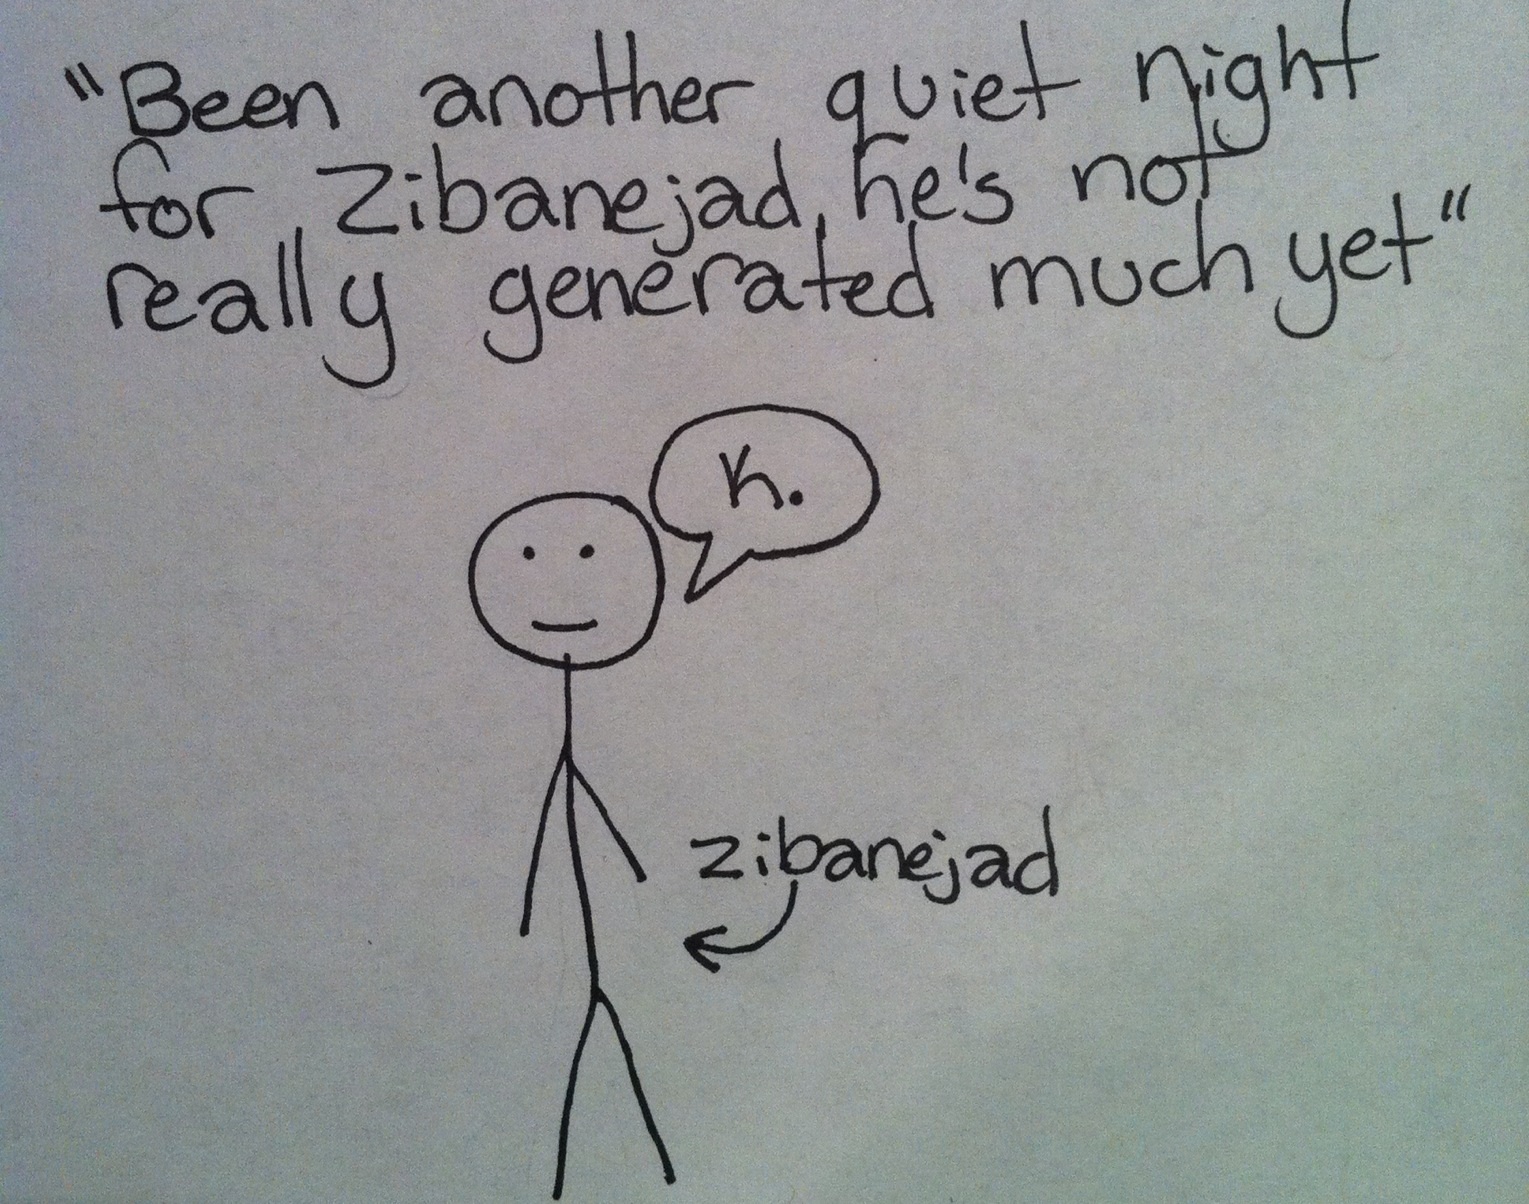 "Been another quiet night
for Zibanejad, he's not
really generated much yet"
K.
zibanejad